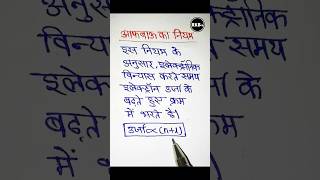 RKB
आफबाऊ का नियम
इस नियम के
अनुसार, इलेक्ट्रॉनिक
विन्यास करते समय
इलेक्ट्रॉन ऊर्जा के
बढ़ते हुए क्रम
में भरते है।
उर्जा ∝ (n+l)